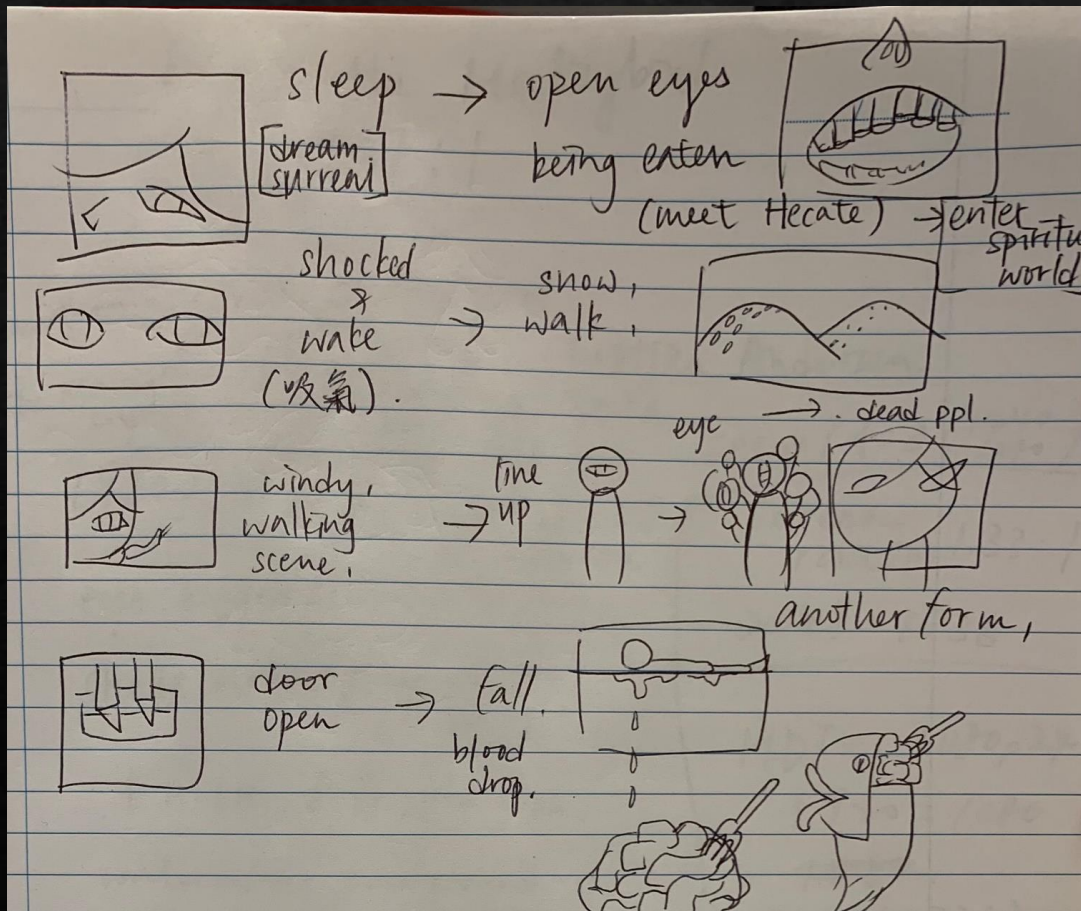 sleep → open eyes
[dream, surreal]
being eaten
(meet Hecate) → enter
spiritu
world
shocked
&
wake
(吸氣).
→ snow,
walk,
→ . dead ppl.
windy,
walking
scene,
→ line
up
→
eye
another form,
door
open
→ fall.
blood
drop.